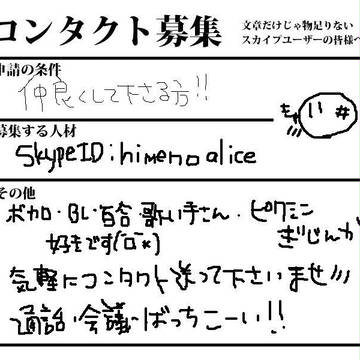 コンタクト募集
文章だけじゃ物足りない
スカイプユーザーの皆様へ
申請の条件
仲良くして下さる方!!
募集する人材
SkypeID:himenoalice
その他
ボカロ・BL・百合・歌い手さん・ピクミン
好きです(ﾛ¯*) ぎじんか
気軽にコンタクト送って下さいませ!!!
通話・会議・ばっちこーい!!